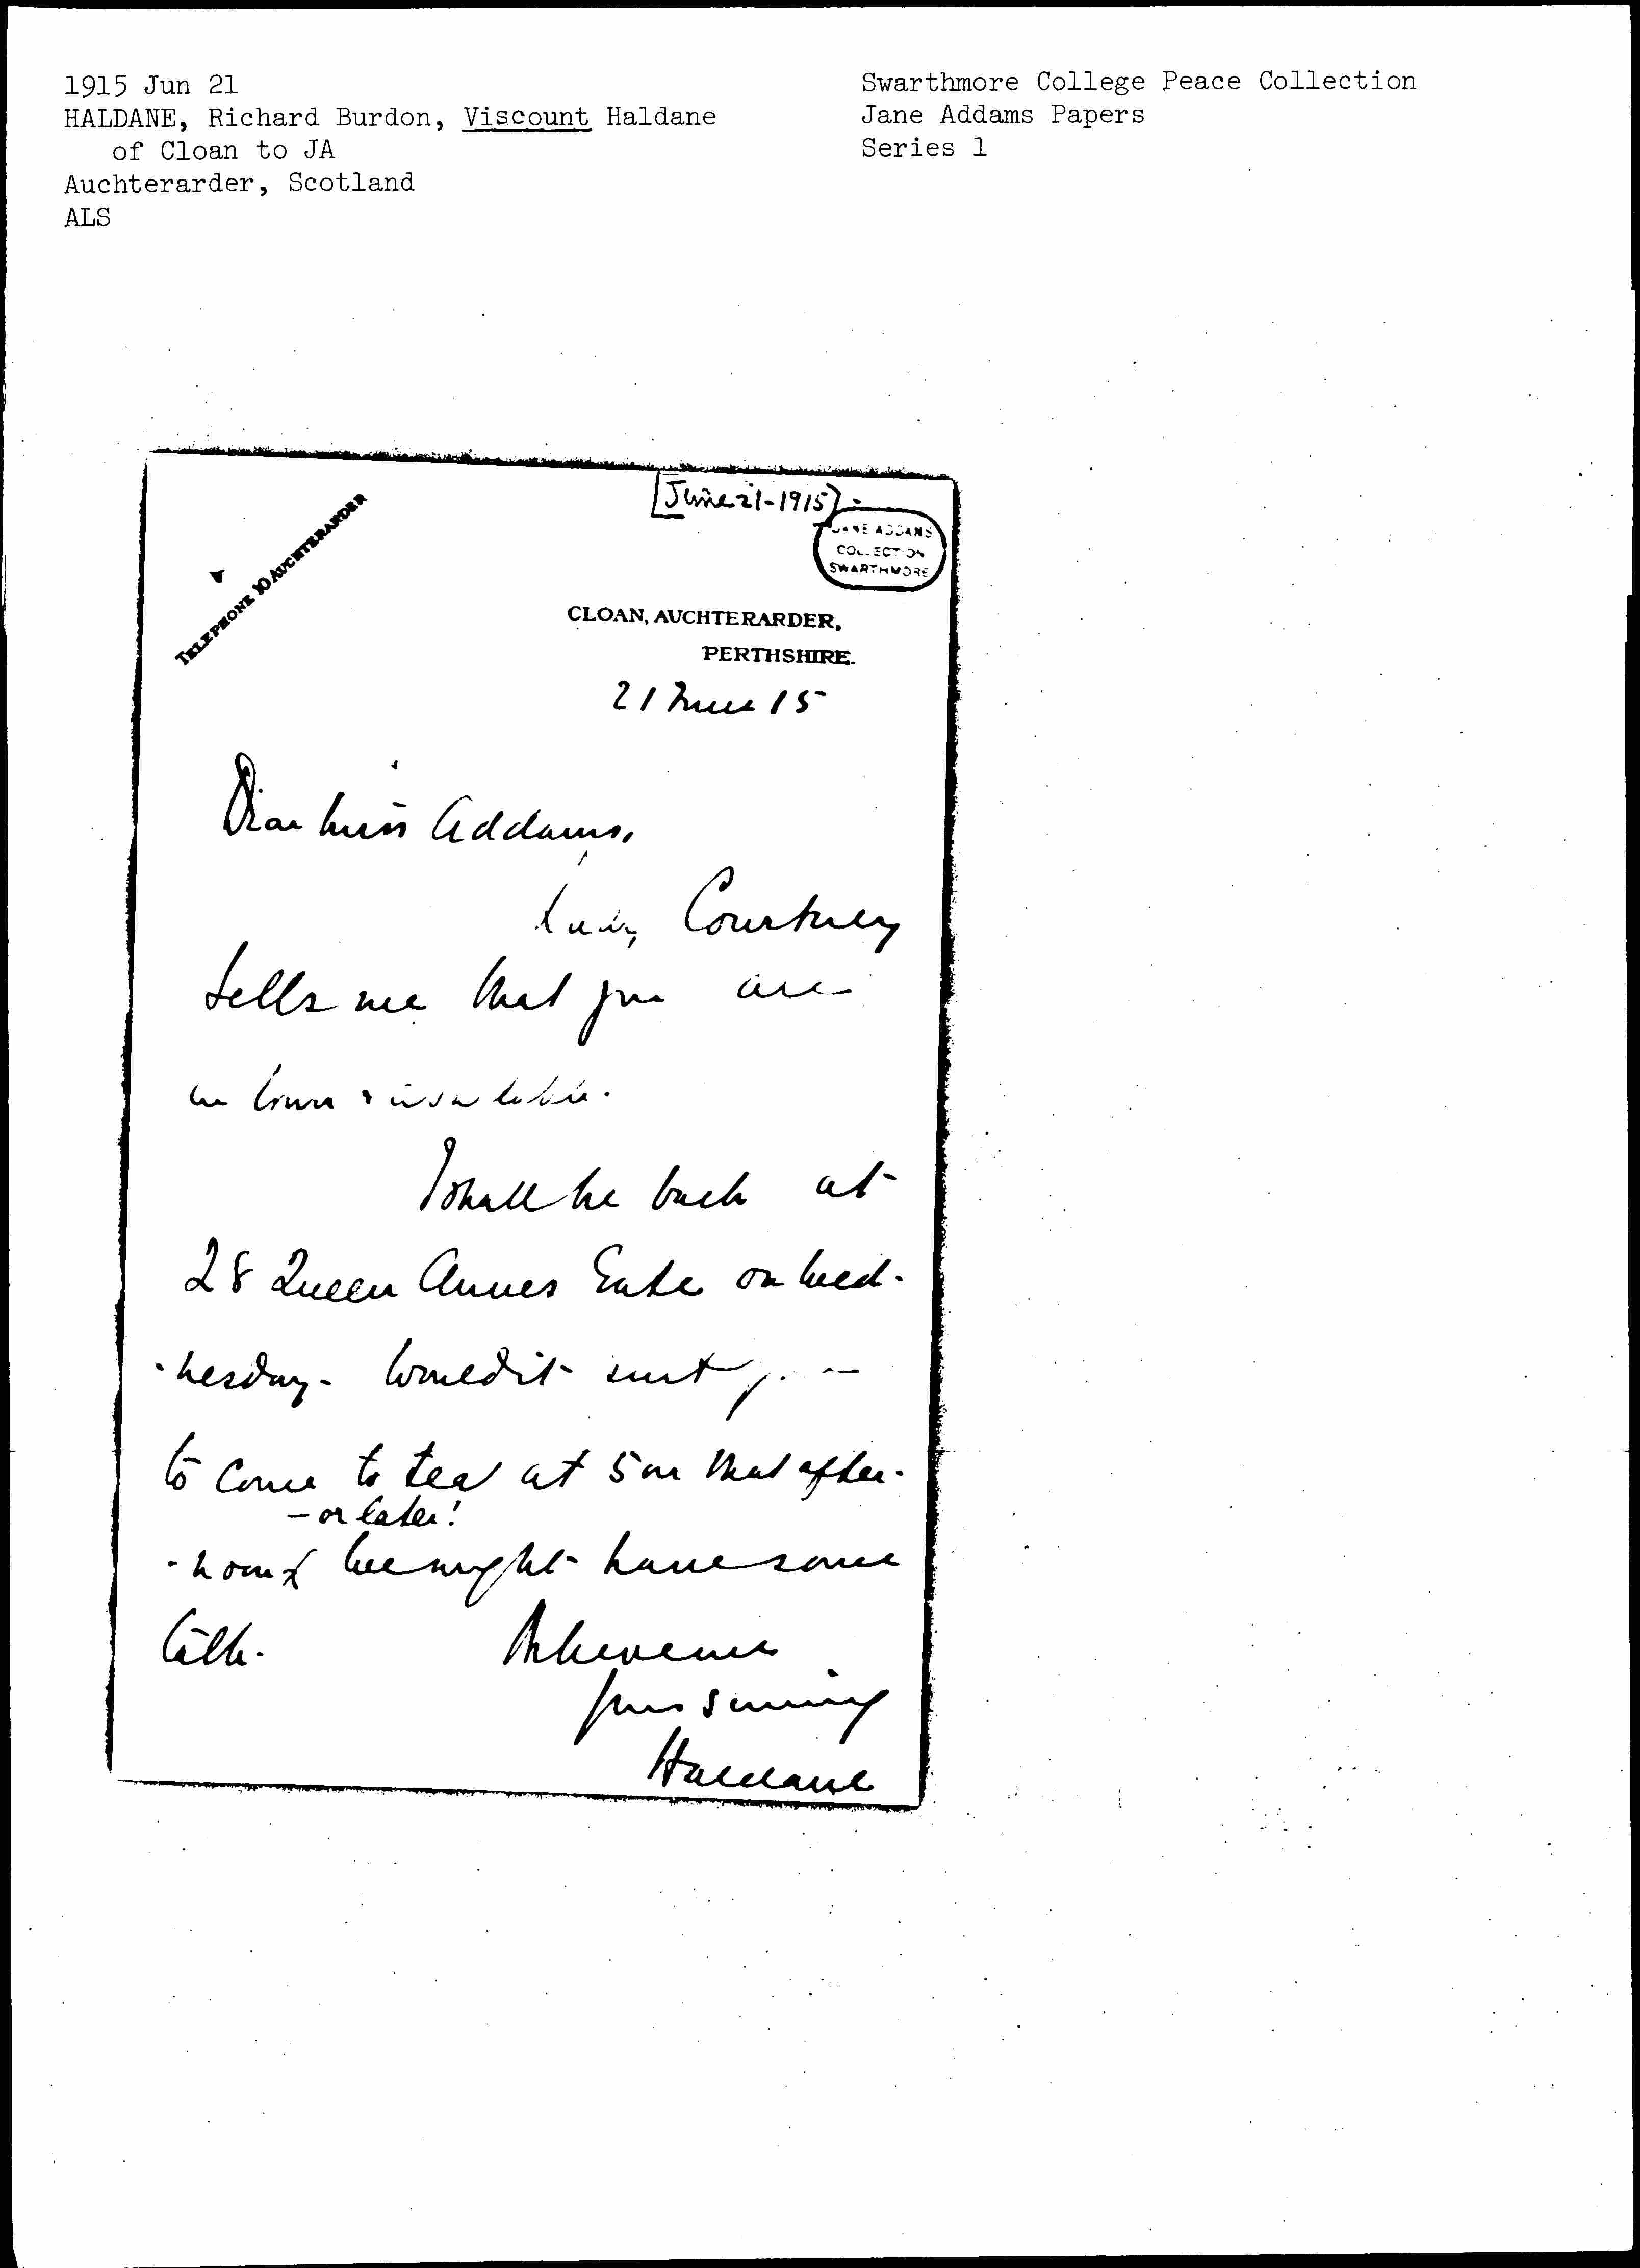 1915 Jun 21
HALDANE, Richard Burdon, Viscount Haldane
of Cloan to JA
Auchterarder, Scotland
ALS
Swarthmore College Peace Collection
Jane Addams Papers
Series 1
[June 21-1915]
JANE ADDAMS
COLLECTION
SWARTHMORE
TELEPHONE 10 AUCHTERARDER
CLOAN, AUCHTERARDER,
PERTHSHIRE.
21 June 15
Dear Miss Addams,
Lady Courtney
tells me that you are
in town
I shall be back at
28 Queen Annes Gate on Wed-
-nesday. Would it suit you
to come to tea at 5 on that after-
- or later!
-noon & we might have some
talk.
Believe me
yours sincerely
Haldane